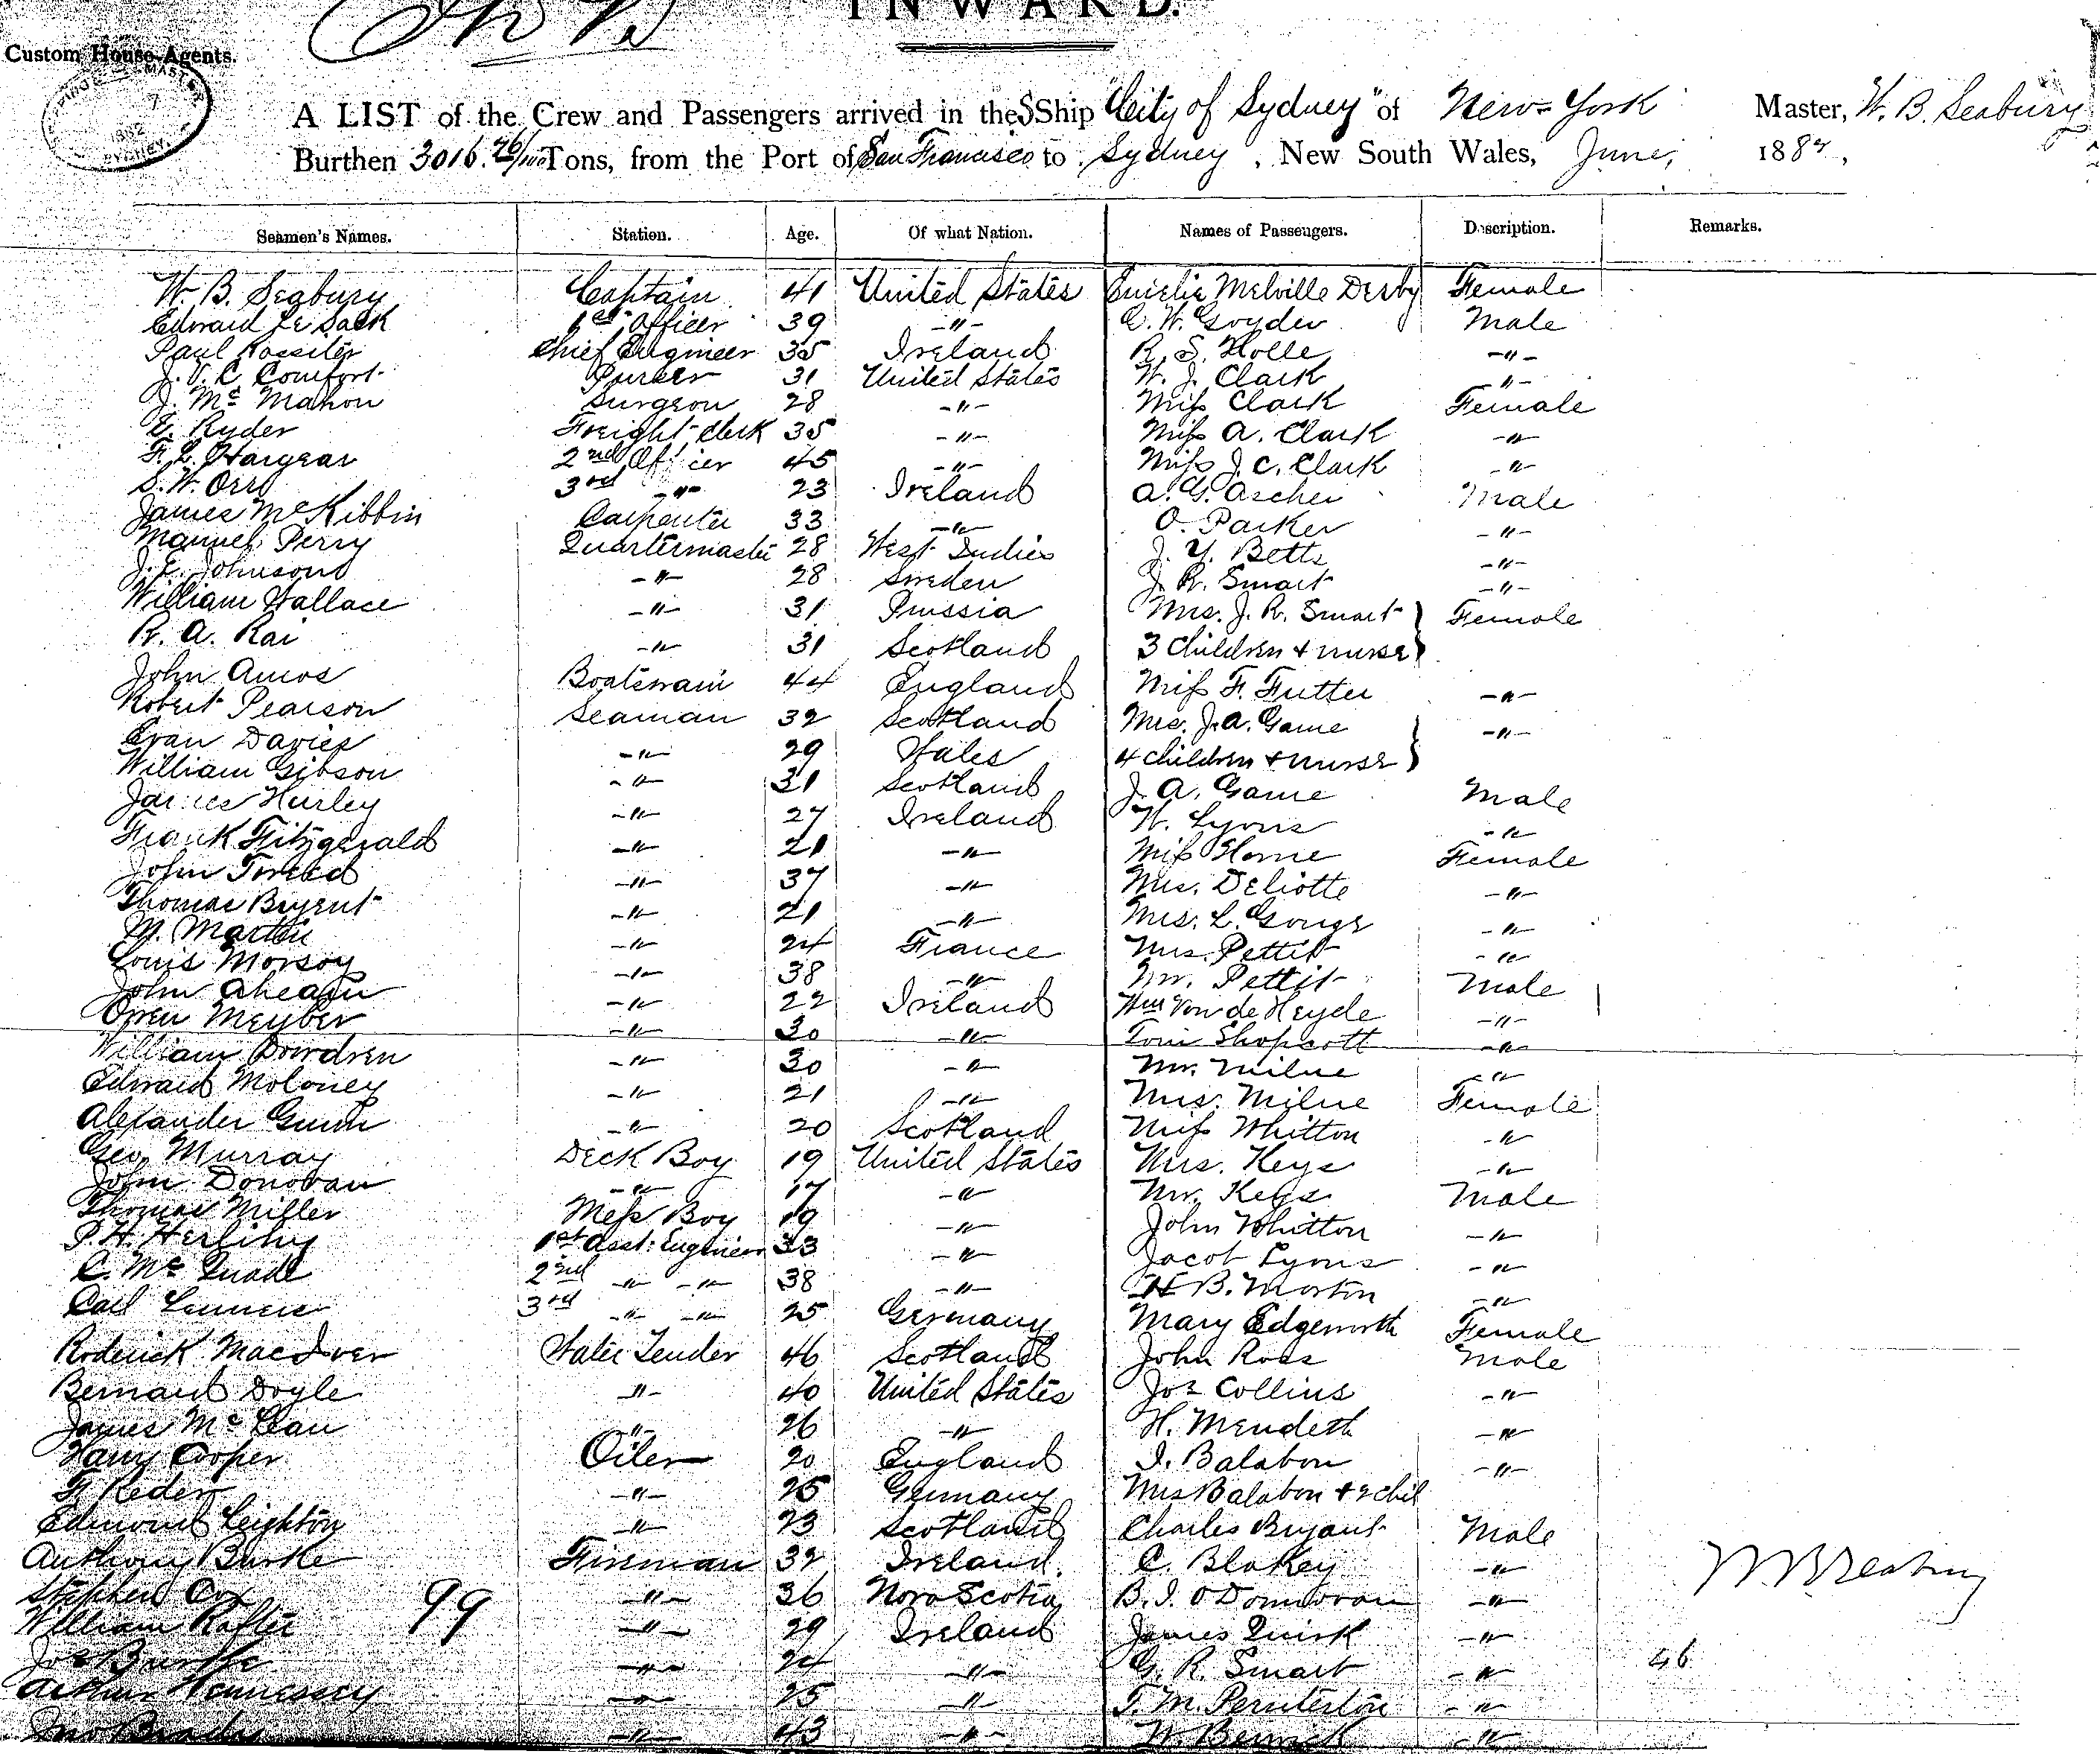 INWARD.
Custom House Agents.
A LIST of the Crew and Passengers arrived in the SShip "City of Sydney" of New-York Master, W. B. Seabury
Burthen 3016. 26/100 Tons, from the Port of San Francisco to Sydney, New South Wales, June, 1882,
Seamen's Names. Station. Age. Of what Nation. Names of Passengers. Description. Remarks.
W. B. Seabury Captain 41 United States Emelie Melville Derby Female
Edward Le Sack 1st Officer 39 -"- W. Goyder Male
Paul Rossiter Chief Engineer 35 Ireland R. S. Holle -"-
J. V. C Comfort Purser 31 United States W. J. Clark -"-
J. Mc Mahon Surgeon 28 -"- Miss Clark Female
E. Ryder Freight Clerk 35 -"- Miss A. Clark -"-
F. L. 2nd Officer 45 -"- Miss J. C. Clark -"-
S. W. Orr 3rd -"- 23 Ireland A. G. Ascher Male
James McKibbin Carpenter 33 -"- O. Parker -"-
Manuel Perry Quartermaster 28 West Indies J. Y. Betts -"-
J. E. Johnson -"- 28 Sweden J. R. Smart -"-
William Wallace -"- 31 Prussia Mrs. J. R. Smart Female
R. A. Rai -"- 31 Scotland 3 children + nurse
John Amos Boatswain 44 England Miss F. Futter -"-
Robert Pearson Seaman 32 Scotland Mrs. J. A. Game -"-
Evan Davies -"- 29 Wales 4 children + nurse
William Gibson -"- 31 Scotland J. A. Game Male
James Hurley -"- 27 Ireland W. Lyons -"-
Frank Fitzgerald -"- 21 -"- Miss Horne Female
John Tweed -"- 37 -"- Mrs. Deliotte -"-
Thomas Bryent -"- 21 -"- Mrs. L. Gouge -"-
M. Martin -"- 24 France Mrs. Pettit -"-
Louis Morsoy -"- 38 -"- Mr. Pettit Male
John Ahearn -"- 22 Ireland Wm Von de Heyde -"-
Owen Meyber -"- 30 -"- Tom Shopcott -"-
William Dowdren -"- 30 -"- Mr. Milne -"-
Edward Moloney -"- 21 -"- Mrs. Milne Female
Alexander Gunn -"- 20 Scotland Miss Whitton -"-
Geo. Murray Deck Boy 19 United States Mrs. Keys -"-
John Donovan -"- 17 -"- Mr. Keys Male
Thomas Miller Mess Boy 19 -"- John Whitton -"-
P. H. Herlihy 1st Asst. Engineer 33 -"- Jacob Lyons -"-
C. Mc Quade 2nd -"- -"- 38 -"- H B. Morton -"-
Carl 3rd -"- -"- 25 Germany Mary Edgeworth Female
Roderick MacIver Water Tender 46 Scotland John Ross Male
Bernard Doyle -"- 40 United States Jos Collins -"-
James Mc Lean -"- 26 -"- H. Mendeth -"-
Harry Cooper Oiler 20 England I. Balabon -"-
Reder -"- 25 Germany Mrs Balabon + 2 chil
Edmond Leighton -"- 23 Scotland Charles Bryant Male
Anthony Burke Fireman 32 Ireland C. Blakey -"-
Stephen Cox -"- 36 Nova Scotia B. J. O'Donnovan -"-
William Rafter -"- 29 Ireland James Quirk -"-
Jos Burke -"- 24 -"- G. R. Smart -"-
Arthur Hennessey -"- 25 -"- T. M. -"-
Jno -"- 43 -"- W. Berwick -"-
99
W B Seabury
46